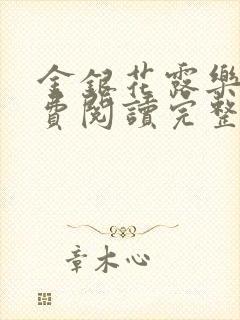 金銀花露樂
費閱讀完整
章木心